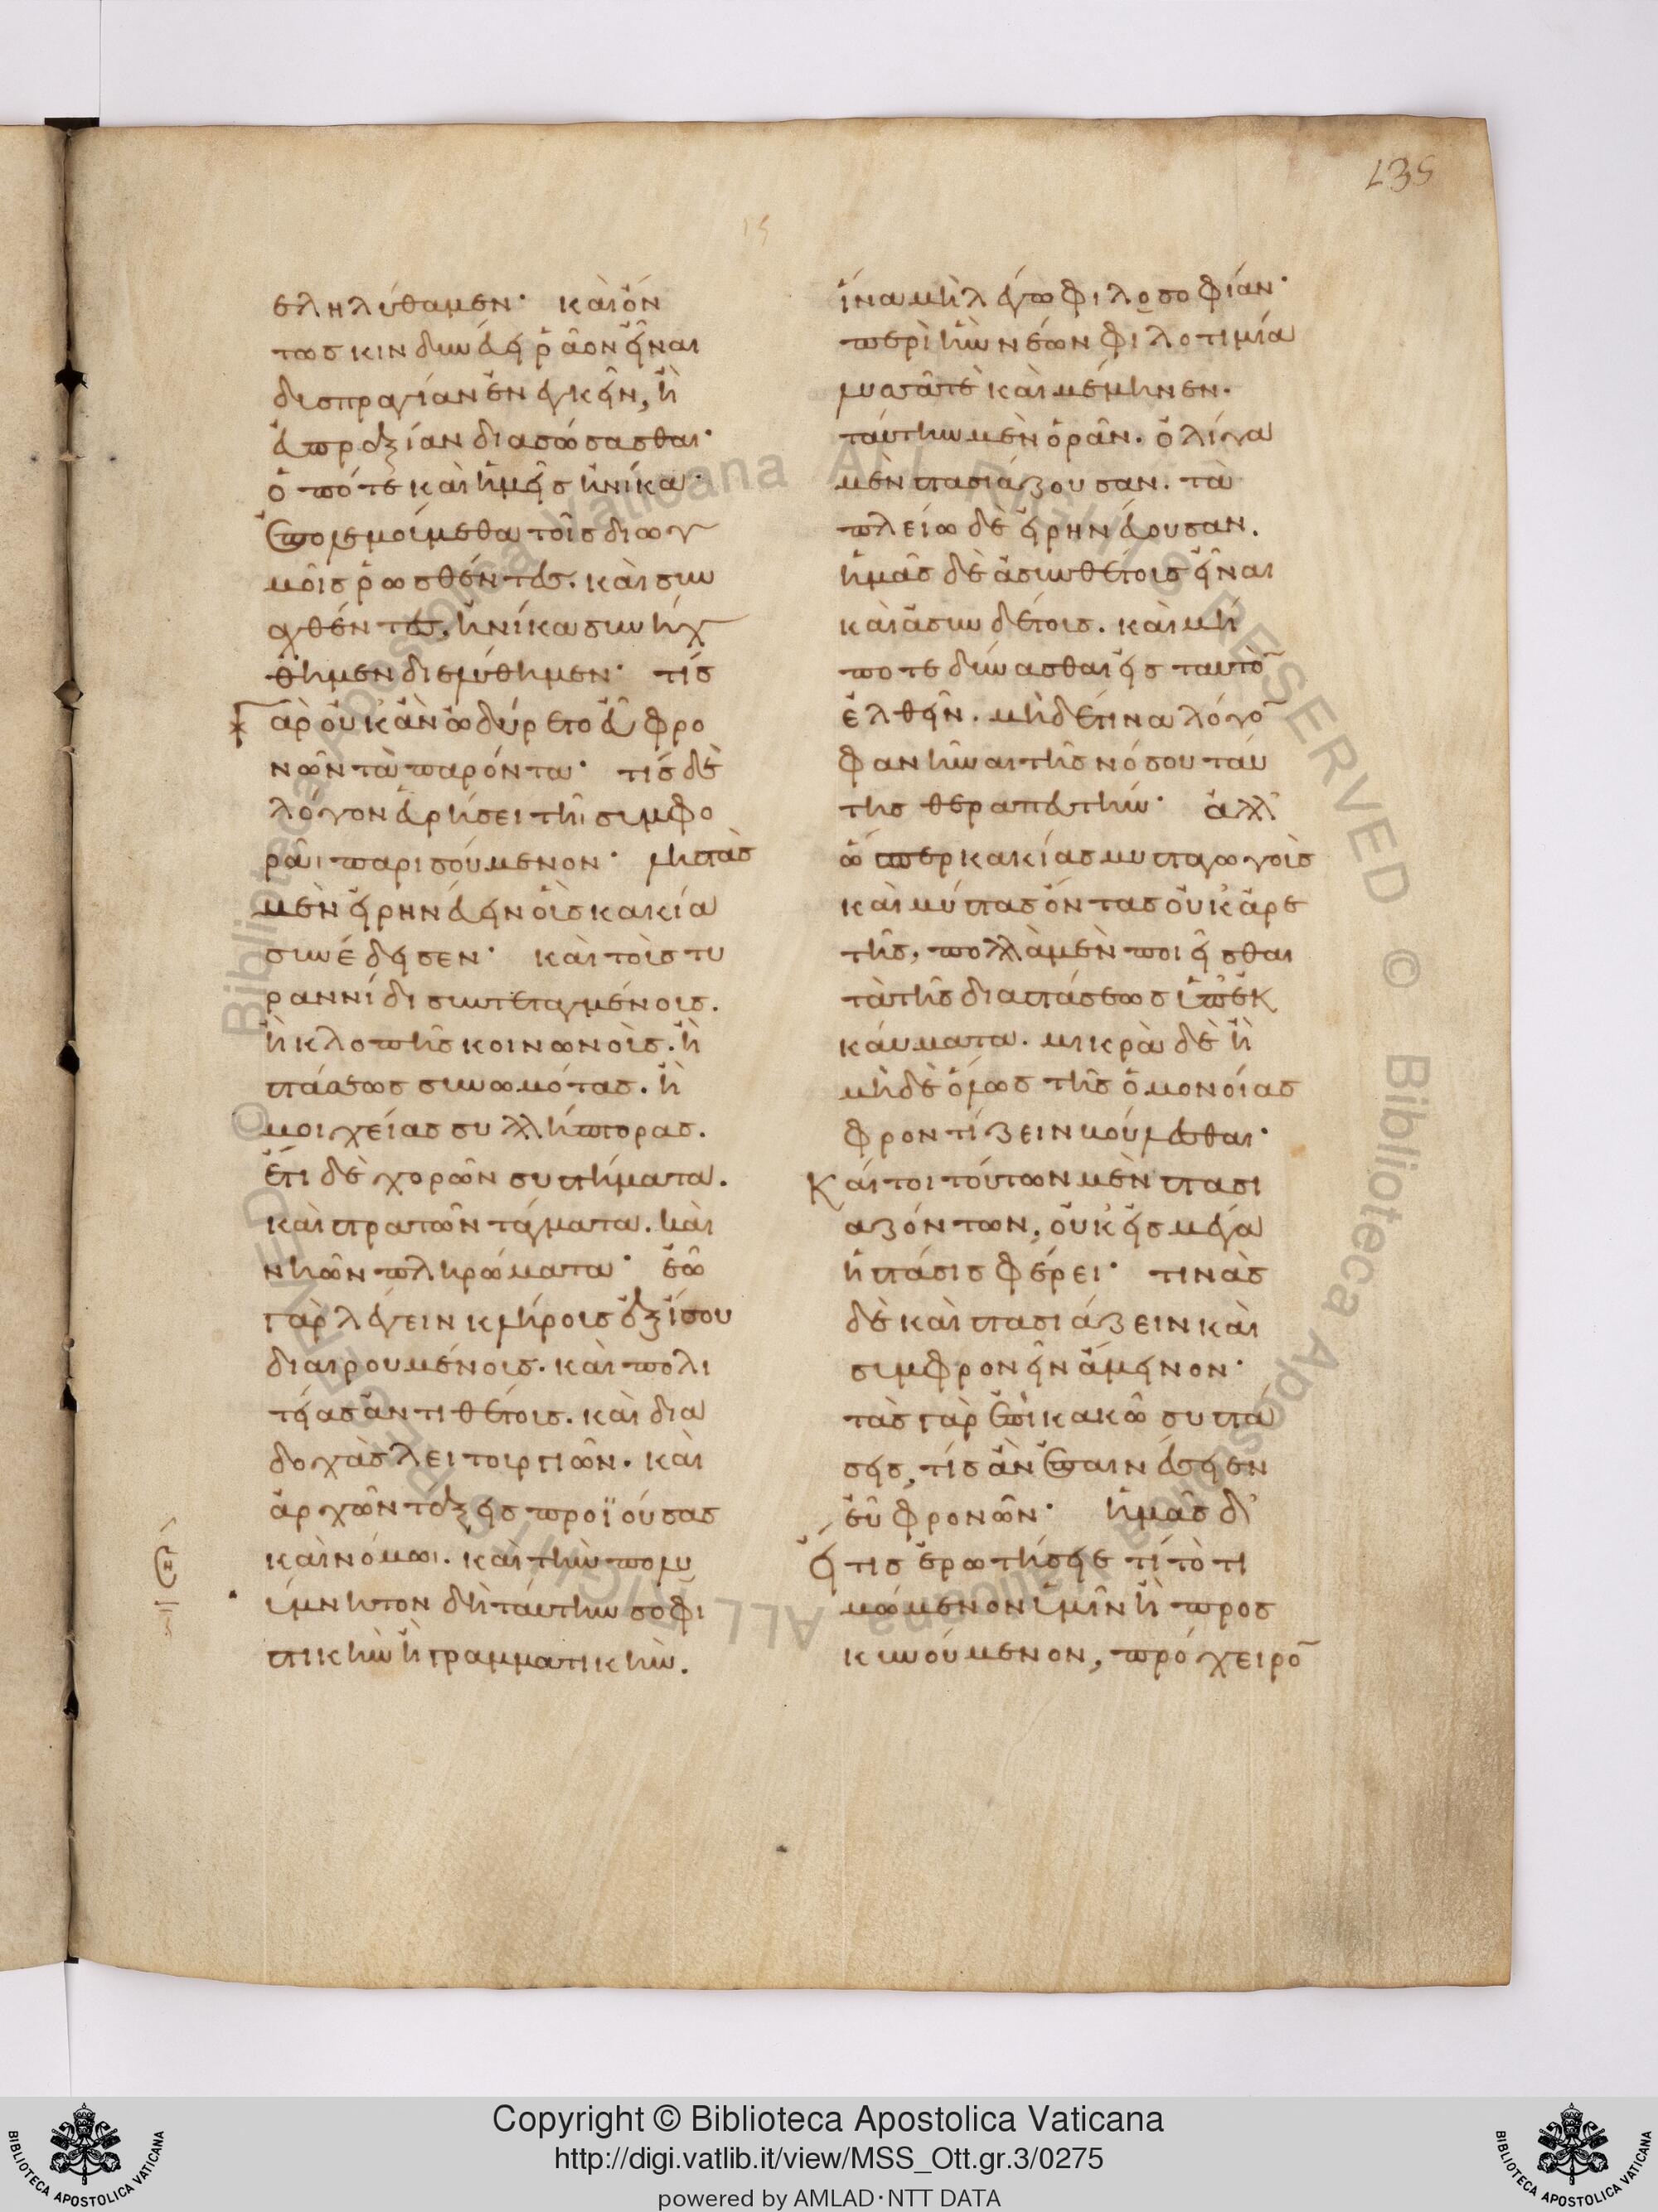 135
εληλύθαμεν· καὶ ὄν
τως κινδυνεύει ῥᾶον εἶναι
δυσπραγίαν ἐνεγκεῖν, ἢ
εὐπραξίαν διασώσασθαι·
ὁπότε καὶ ἡμεῖς ἡνίκα
ἐπολεμούμεθα τοῖς διωγ
μοῖς ῥωσθέντες. καὶ συν
αχθέντες. ἡνίκα συνήχ
θημεν διελύθημεν· τίς
ἄρ οὐκ ἂν ὠδύρετο εὖ φρο
νῶν τὰ παρόντα· τίς δὲ
λόγον εὑρήσει τῆι συμφο
ρᾶι παρισούμενον· ληστὰς
μὲν εἰρηνεύειν οἷς κακία
συνέδησεν· καὶ τοῖς τυ
ραννίδι συντεταγμένοις.
ἢ κλοπῆς κοινωνοῖς. ἢ
στάσεως συνωμότας. ἢ
μοιχείας συλλήπτορας.
ἔτι δὲ χορῶν συστήματα.
καὶ στρατῶν τάγματα. καὶ
νηῶν πληρώματα· ἐῶ
γὰρ λέγειν κλήροις ἐξίσου
διαιρουμένοις. καὶ πολι
τείας ἀντιθέτοις. καὶ δια
δοχὰς λειτουργιῶν. καὶ
ἀρχῶν τάξεις προϊούσας
καὶ νόμωι. καὶ τὴν πολυ
ύμνητον δὴ ταύτην σοφι
στικὴν ἢ γραμματικὴν.
ἵνα μὴ λέγω φιλοσοφίαν·
περὶ ἣν νέων φιλοτιμία
λυσσᾶτε καὶ μέμηνεν.
ταύτην μὲν ὁρᾶν. ὀλίγα
μὲν στασιάζουσαν. τὰ
πλείω δὲ εἰρηνεύουσαν.
ἡμᾶς δὲ ἀσυνθέτοις εἶναι
καὶ ἀσυνδέτοις. καὶ μή
ποτε δύνασθαι εἰς ταυτὸ
ἐλθεῖν. μὴδέ τινα λόγο
φανῆναι τῆς νόσου ταύ
της θεραπευτήν· ἀλλ'
ὥσπερ κακίας μυσταγωγοὶς
καὶ μύστας ὄντας οὐκ ἀρε
τῆς, πολλὰ μὲν ποιεῖσθαι
τὰ τῆς διαστάσεως ὑπέκ
καύματα. μικρὰ δὲ ἢ
μὴδὲ ὅλως τῆς ὁμονοίας
φροντίζειν κούεσθαι·
Καίτοι τούτων μὲν στασι
αζόντων, οὐκ εἰς μέγα
ἡ στάσις φέρει· τινὰς
δὲ καὶ στασιάζειν καὶ
συμφρονεῖν ἄμεινον·
τὰς γὰρ ἐπὶ κακῶ συστά
σεις, τίς ἂν ἐπαινέσειεν
εὖ φρονῶν· ἡμᾶς δ'
εἴ τις ἐρωτήσειε τί τὸ τι
μώμενον ὑμῖν ἢ προσ
κυνούμενον, πρόχειρο
Copyright © Biblioteca Apostolica Vaticana
http://digi.vatlib.it/view/MSS_Ott.gr.3/0275
powered by AMLAD·NTT DATA